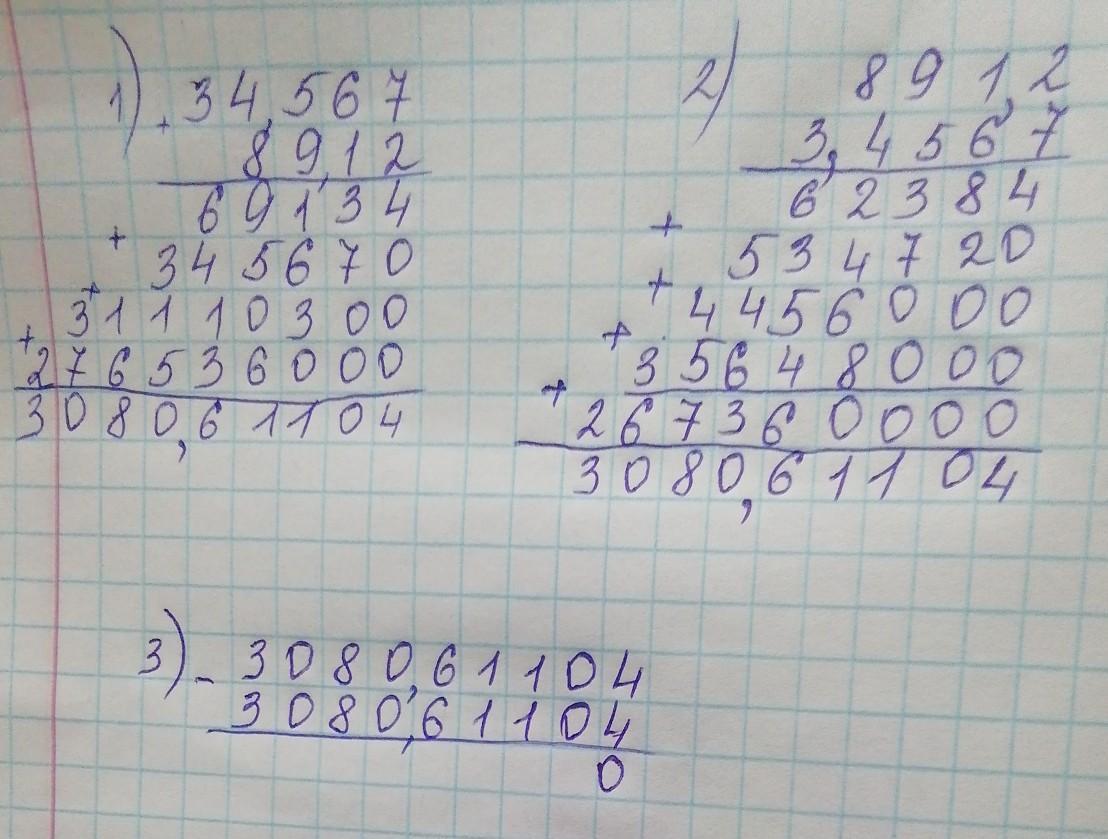 1) + 34,567
89,12
69134
+ 345670
+ 31110300
+ 276536000
3080,61104
2) 891,2
3,4567
62384
+ 534720
+ 4456000
+ 35648000
+ 267360000
3080,61104
3) - 3080,61104
3080,61104
0